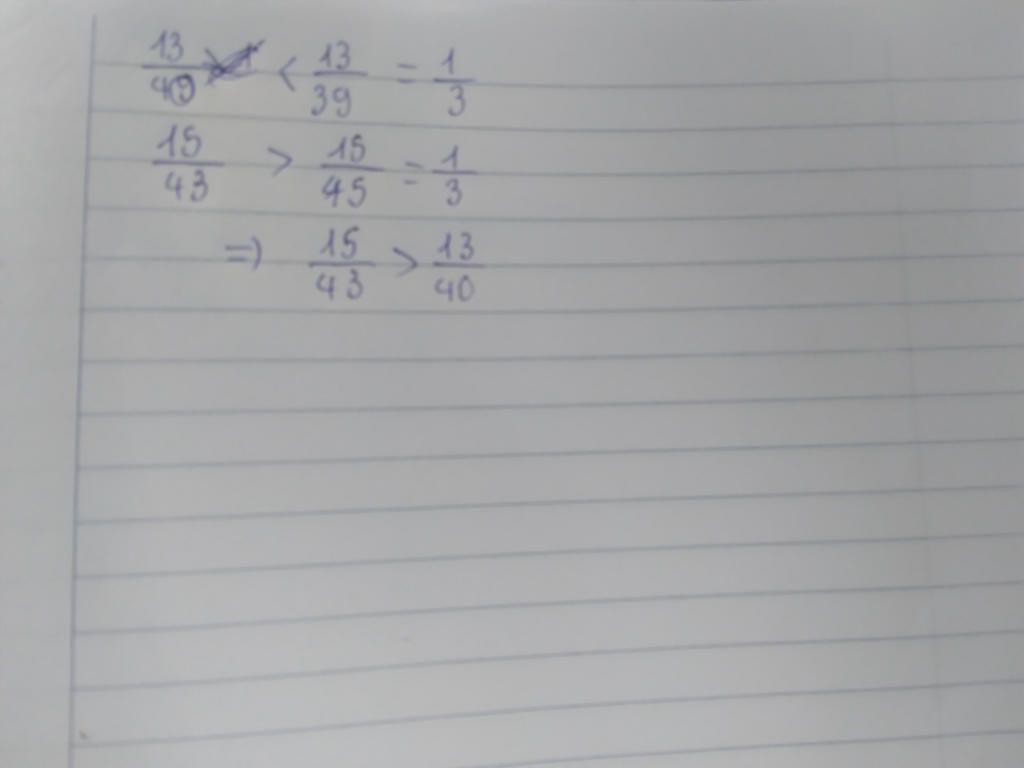 13/40 < 13/39 = 1/3
15/43 > 15/45 = 1/3
=) 15/43 > 13/40